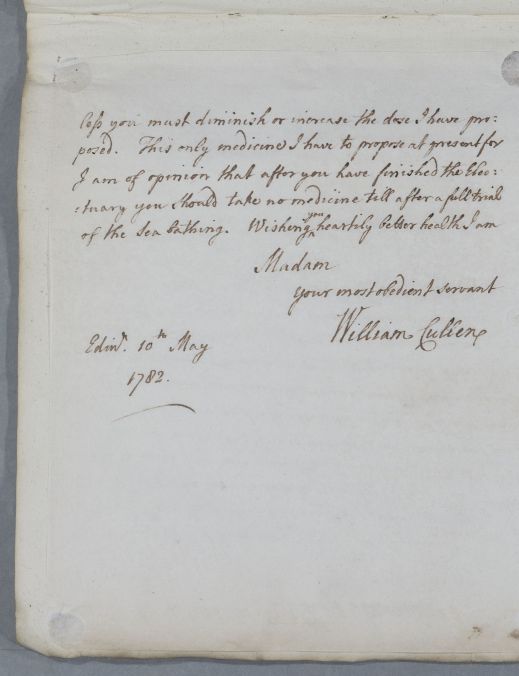 less you must diminish or increase the dose I have pro:
posed. This only medicine I have to propose at present for
I am of opinion that after you have finished the Elec:
:tuary you should take no medicine till after a full trial
of the Sea bathing. Wishing you heartily better health I am
Madam
your most obedient servant
William Cullen
Edinr. 10th May
1782.